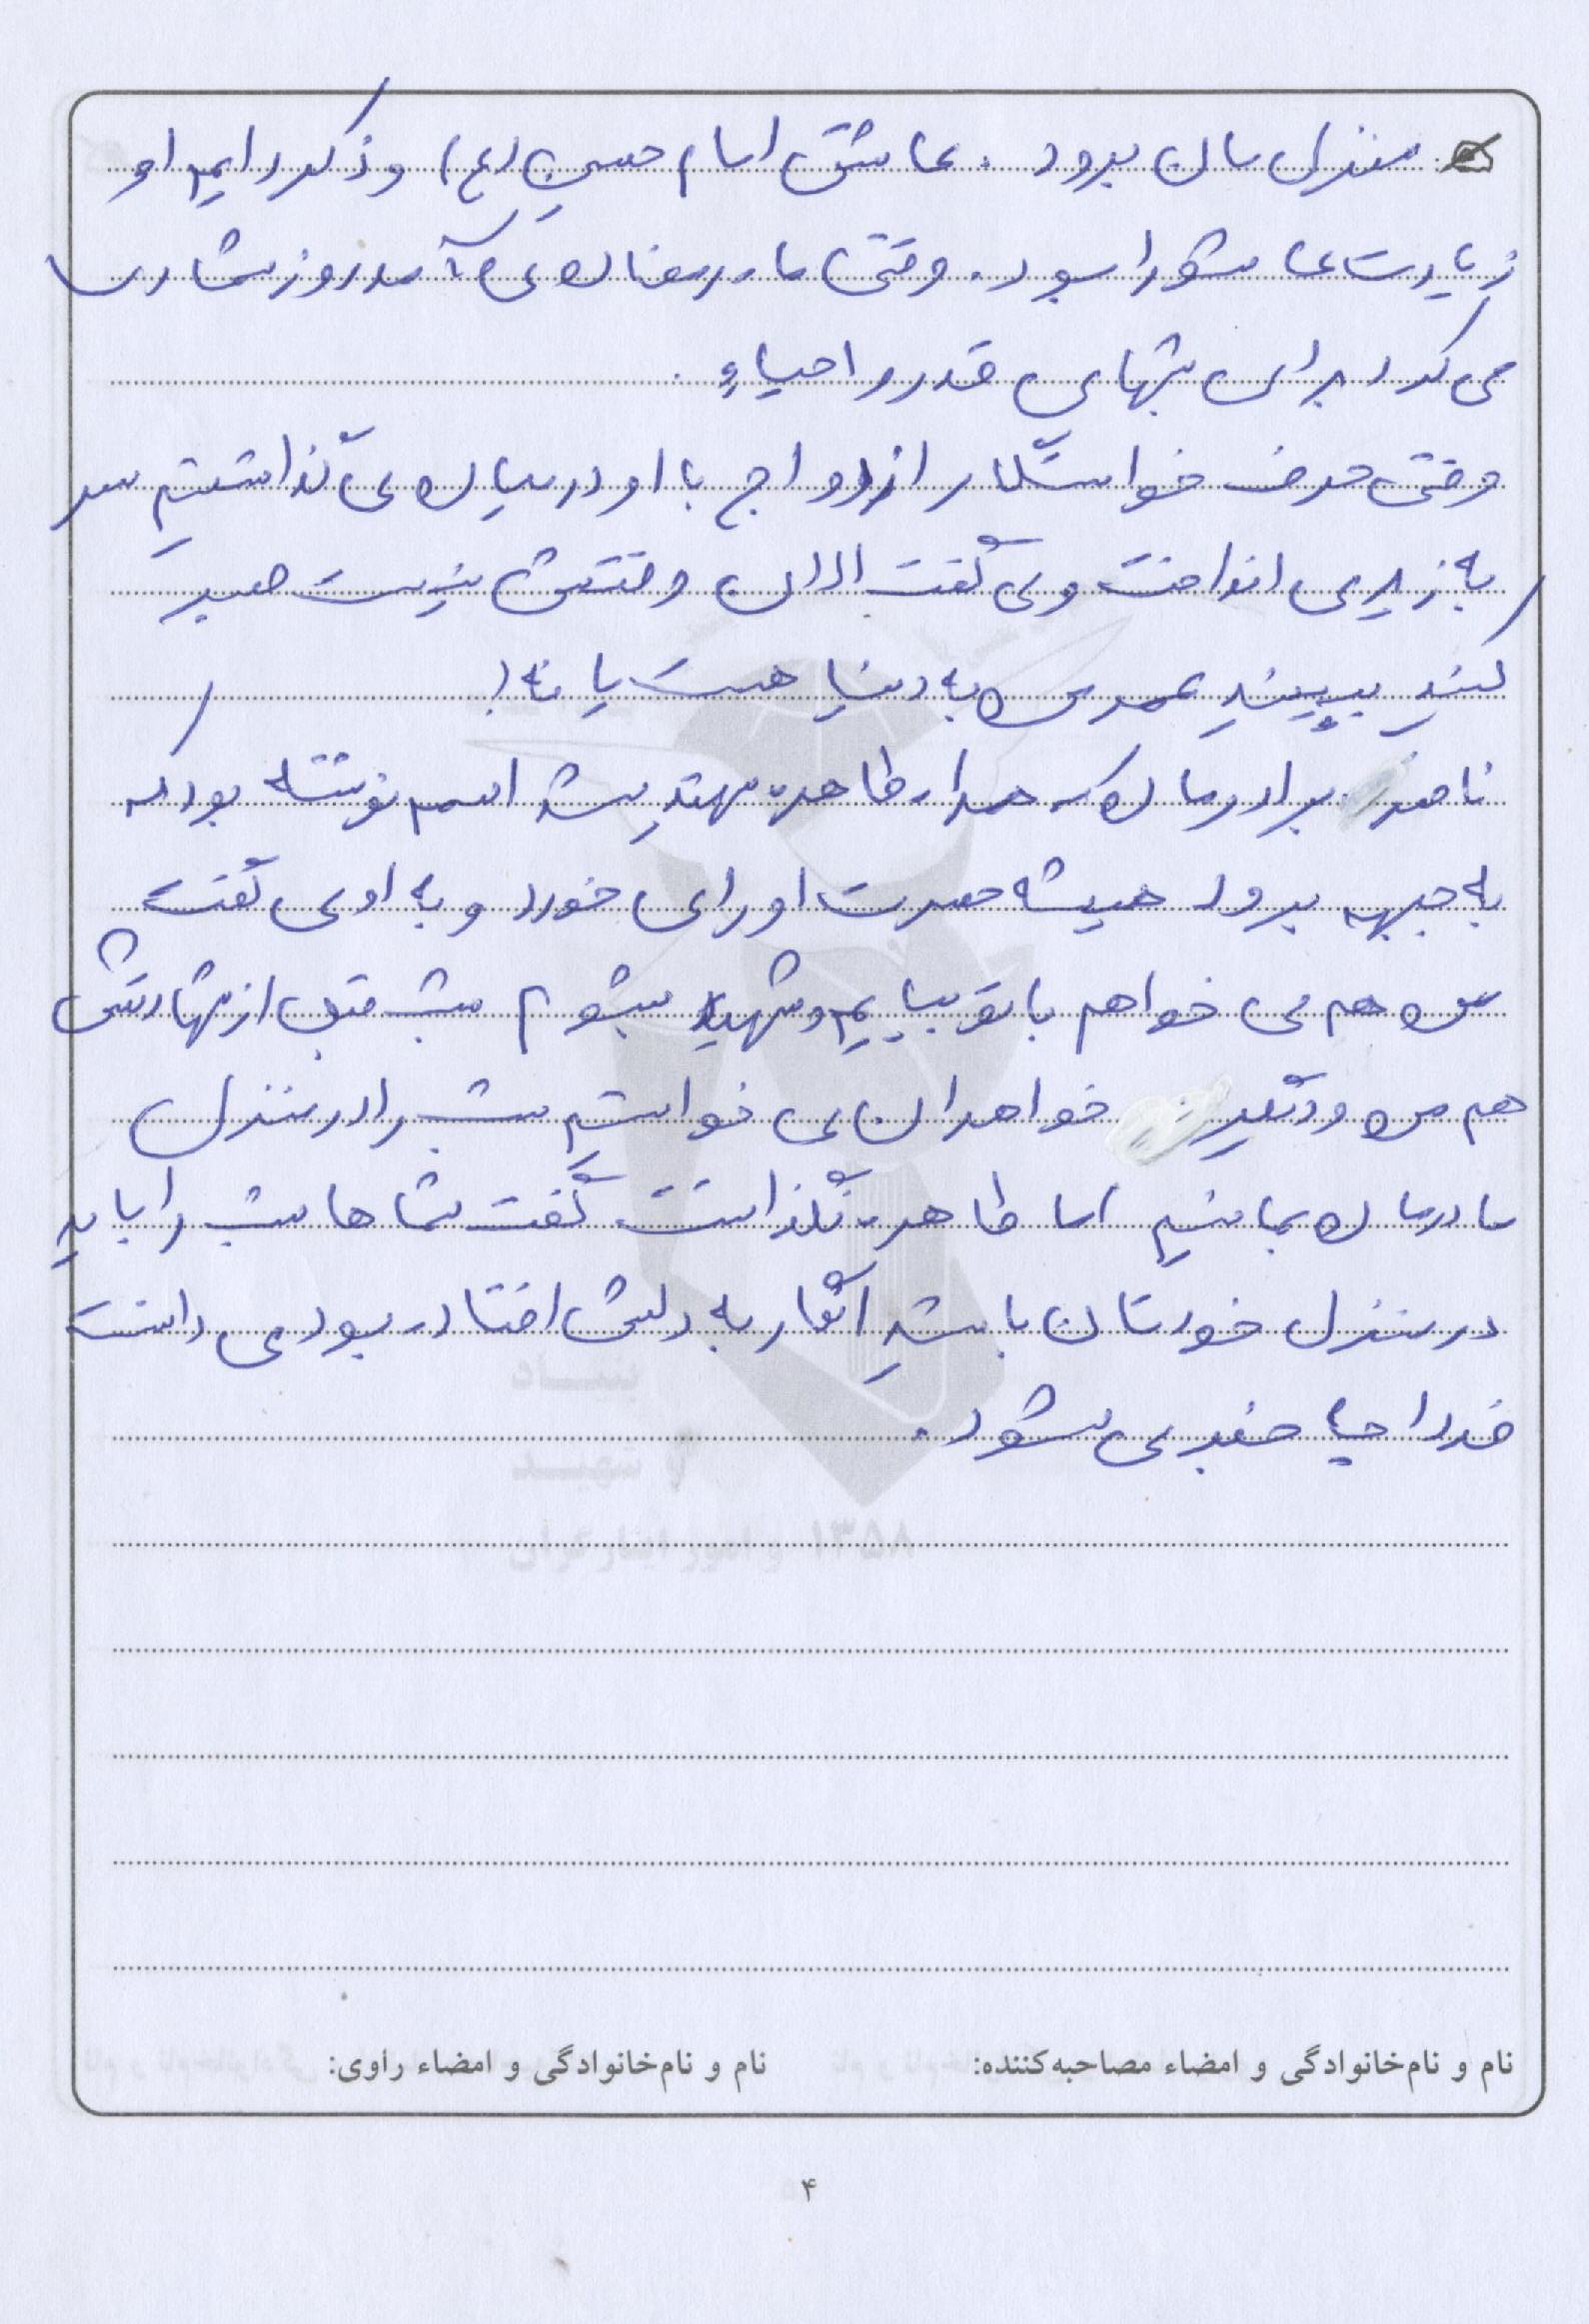 منزل مان برود. عاشق امام حسین (ع) و ذکر دایم او
زیارت عاشورا بود. وقتی ماه رمضان می آمد روز شماری
می کرد برای شبهای قدر و احیاء.
وقتی حرف خواستگار ازدواج با او در میان می گذاشتیم سر
به زیر می انداخت و می گفت الان وقتش نیست صبر
کنید ببینید عمر من به دنیا هست یا نه!
ناصر برادرمان که همراه طاهره شهید شد اسم نوشته بود که
به جبهه برود همیشه حسرت او را می خورد و به او می گفت
من هم می خواهم با تو بیایم و شهید بشوم شب قبل از شهادتش
هم من و دیگر خواهران می خواستیم شب را در منزل
مادرمان بمانیم اما طاهره نگذاشت گفت شماها شب را باید
در منزل خودتان باشید انگار به دلش افتاده بود می دانست
فردا چه خبر می شود.
بنیاد
شهید
و امور ایثارگران ۱۳۵۸
نام و نام‌خانوادگی و امضاء مصاحبه‌کننده: نام و نام‌خانوادگی و امضاء راوی:
۴